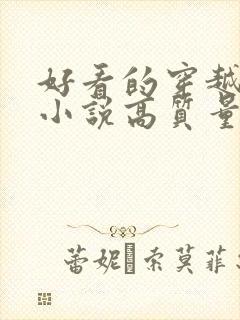 好看的穿越
小說高質量
蕾妮·索莫菲